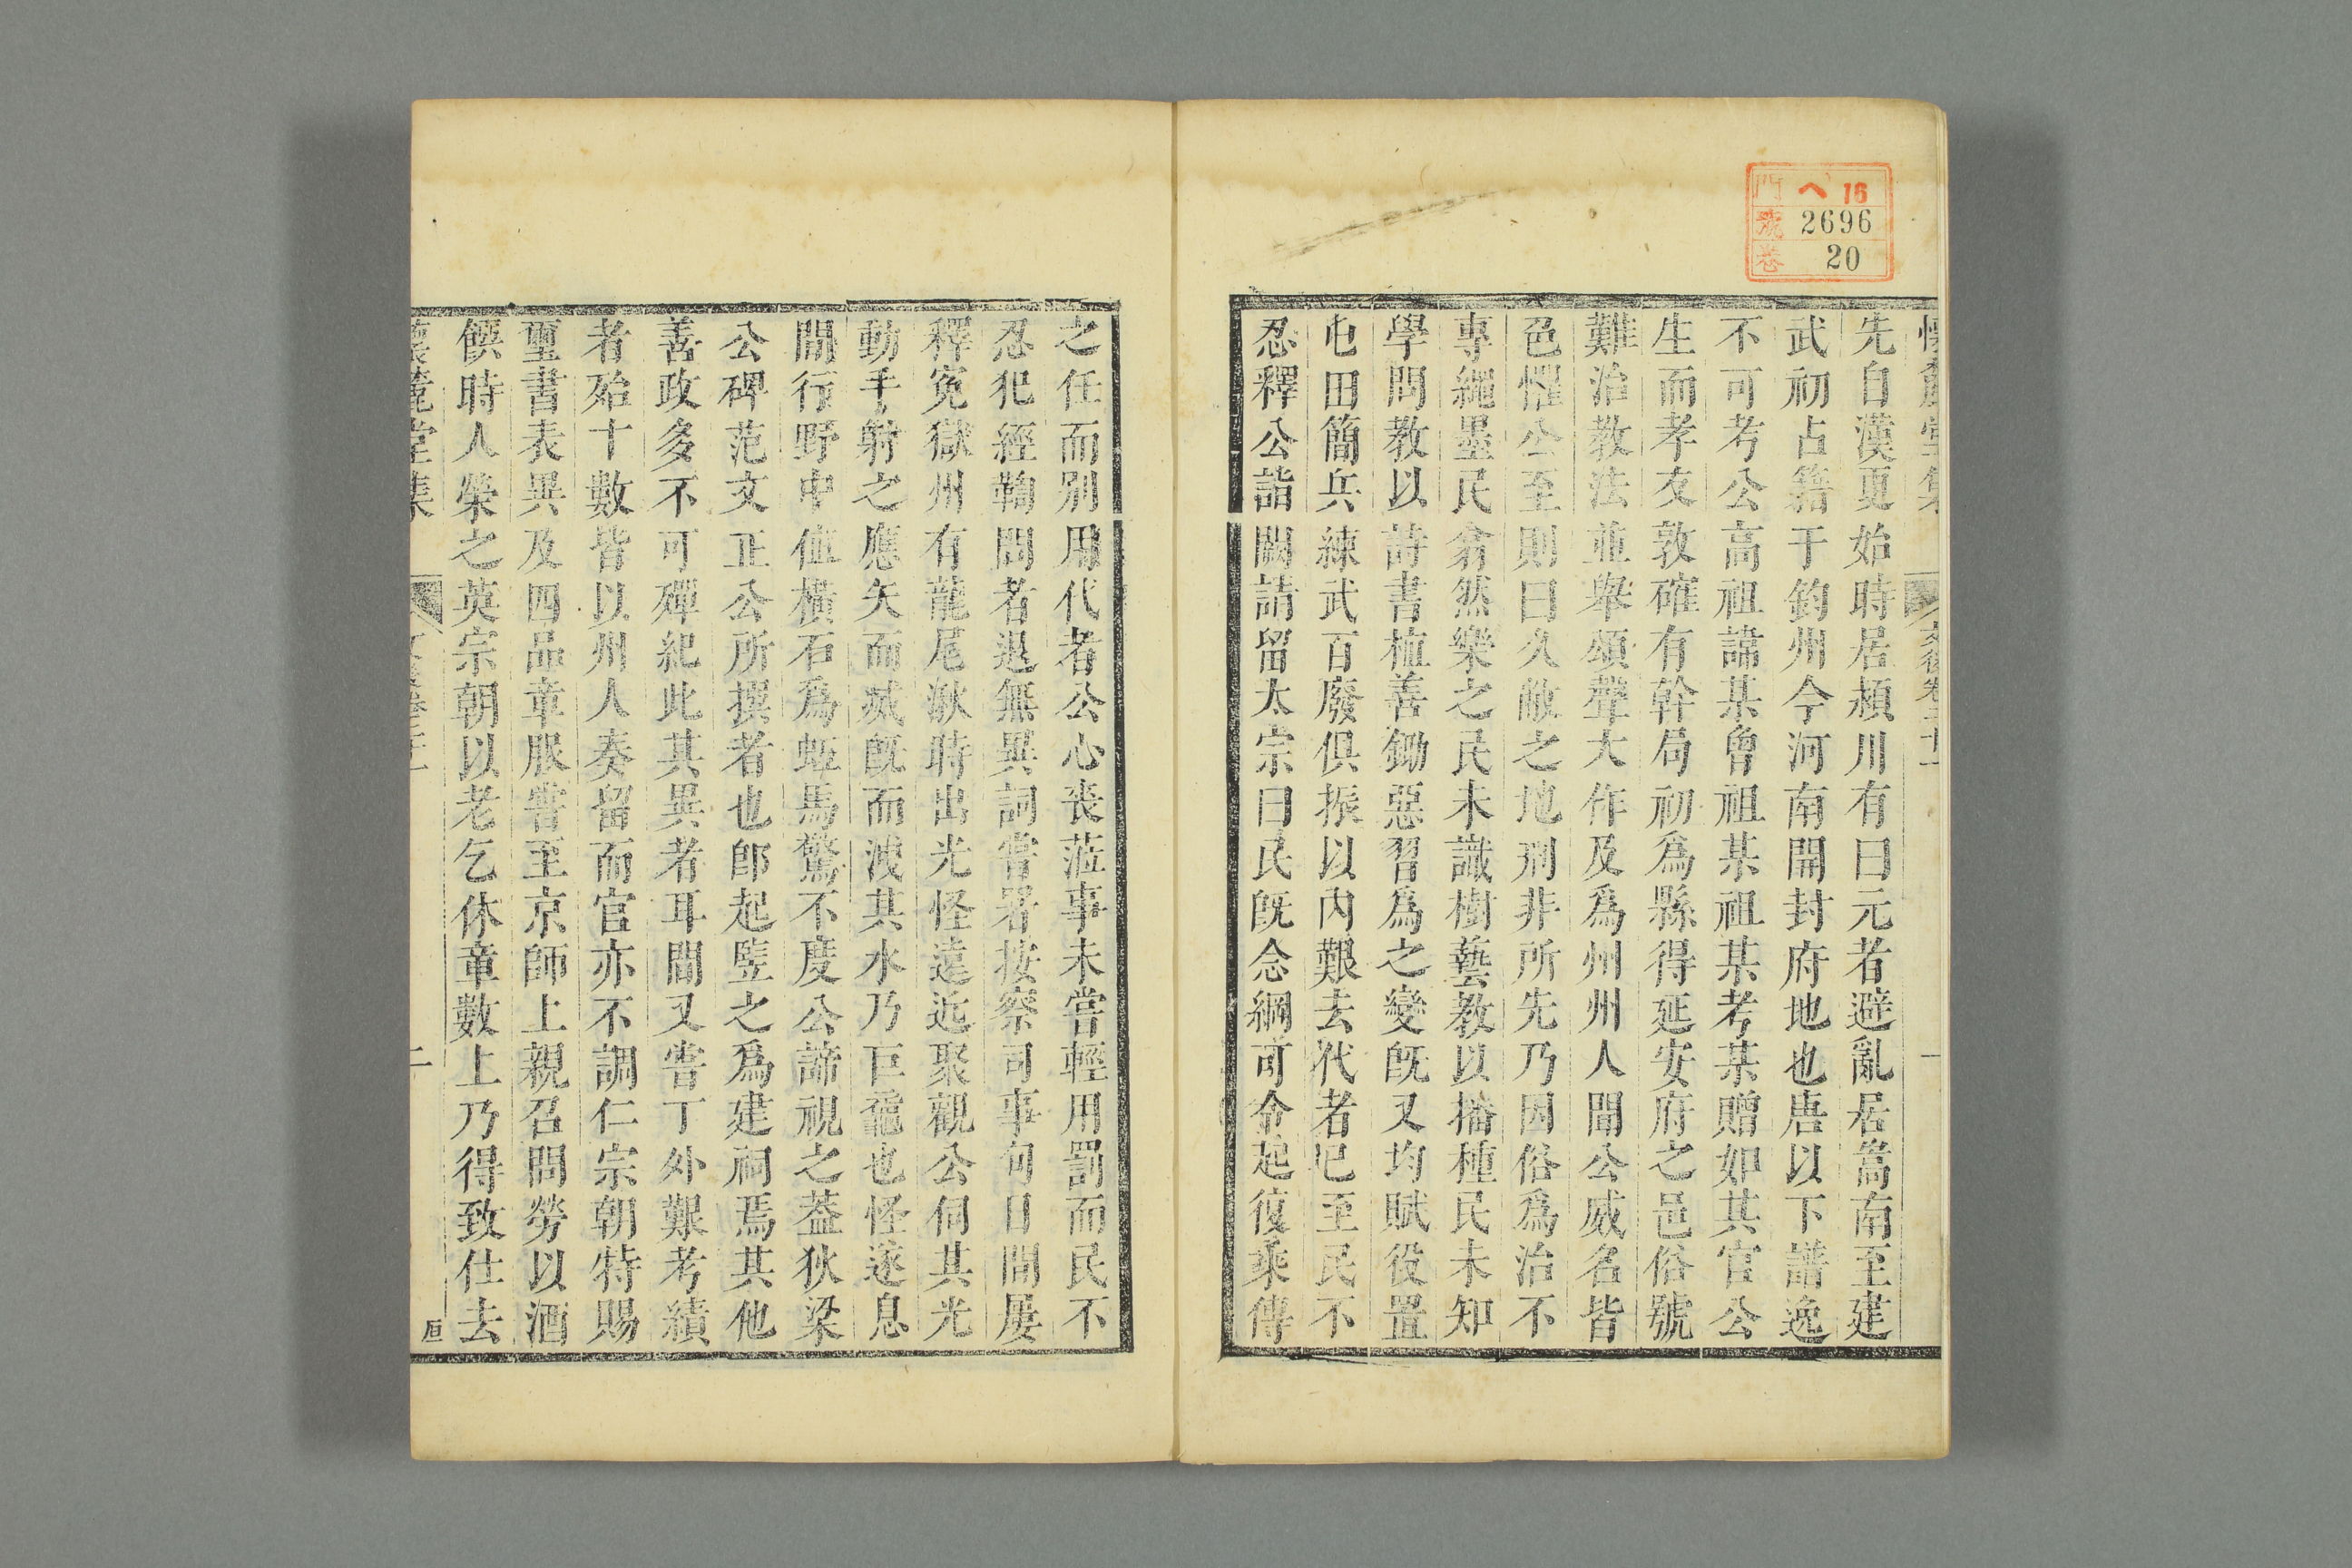 門 ヘ 16
號 2696
卷 20
先自漢更始時居潁川有曰元者避亂居嵩南至建
武初占籍于鈞州今河南開封府地也唐以下譜逸
不可考公高祖諱某曾祖某祖某考某贈如其官公
生而孝友敦確有幹局初爲縣得延安府之邑俗號
難治教法並舉頌聲大作及爲州州人聞公威名皆
色懼公至則曰久敝之地刑非所先乃因俗爲治不
專繩墨民翕然樂之民未識樹藝教以播種民未知
學問教以詩書植善鋤惡習爲之變旣又均賦役置
屯田簡兵練武百廢俱振以內艱去代者已至民不
忍釋公詣闕請留太宗曰民旣念綱可令起復乘傳
之任而別用代者公心喪蒞事未嘗輕用罰而民不
忍犯經鞫問者退無異詞嘗署按察司事旬日間屢
釋冤獄州有龍尾湫時出光怪遠近聚觀公伺其光
動手射之應矢而滅旣而涸其水乃巨黿也怪遂息
間行野中値橫石爲蛭馬驚不度公諦視之蓋狄梁
公碑范文正公所撰者也卽起竪之爲建祠焉其他
善政多不可殫紀此其異者耳間又嘗丁外艱考績
者殆十數皆以州人奏留而官亦不調仁宗朝特賜
璽書表異及四品章服嘗至京師上親召問勞以酒
饌時人榮之英宗朝以老乞休章數上乃得致仕去
懷麓堂集 二